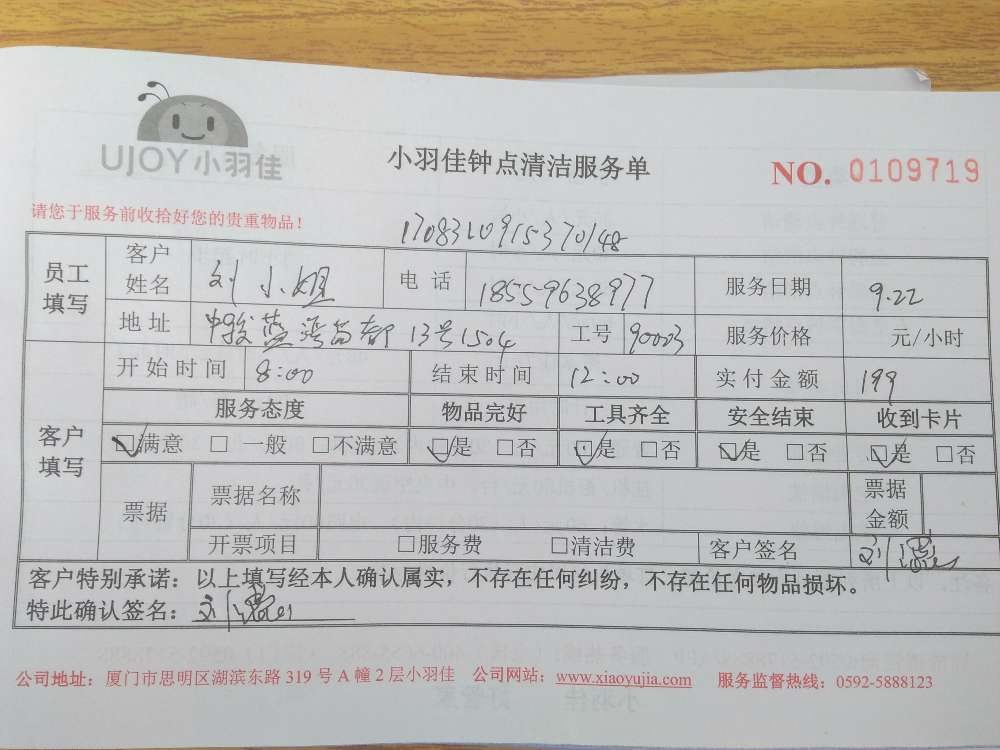 UJOY小羽佳
小羽佳钟点清洁服务单
NO. 0109719
请您于服务前收拾好您的贵重物品!
1708310915370148
员工填写 客户姓名 刘小姐 电话 18559638977 服务日期 9.22
地址 中骏蓝湾尚都13号1504 工号 90003 服务价格 元/小时
客户填写 开始时间 8:00 结束时间 12:00 实付金额 199
服务态度 物品完好 工具齐全 安全结束 收到卡片
☑满意 □一般 □不满意 ☑是 □否 ☑是 □否 ☑是 □否 ☑是 □否
票据 票据名称 票据金额
开票项目 □服务费 □清洁费 客户签名 刘
客户特别承诺：以上填写经本人确认属实，不存在任何纠纷，不存在任何物品损坏。
特此确认签名：刘
公司地址：厦门市思明区湖滨东路 319 号 A 幢 2 层小羽佳 公司网站：www.xiaoyujia.com 服务监督热线：0592-5888123